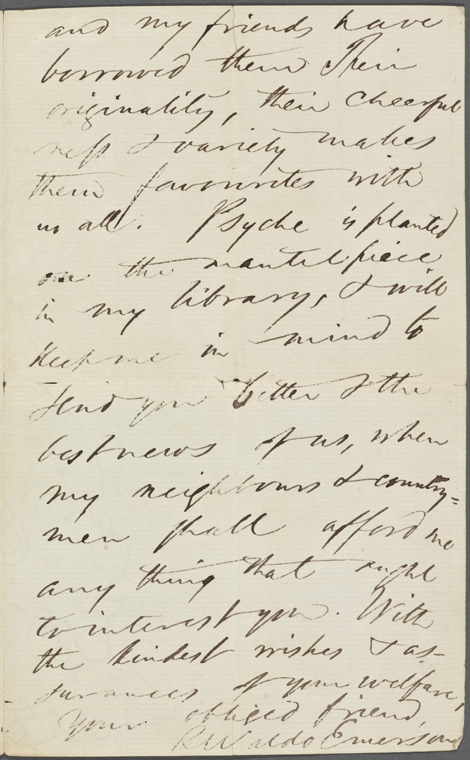 and my friends have
borrowed them Their
originality, their cheerful
ness & variety makes
them favourites with
us all. Psyche is planted
on the mantelpiece
in my library, & will
keep me in mind to
send you better & the
best news of us, when
my neighbours & country=
men shall afford me
any thing that ought
to interest you. With
the kindest wishes & as-
surances of your welfare,
Your obliged friend,
R. Waldo Emerson